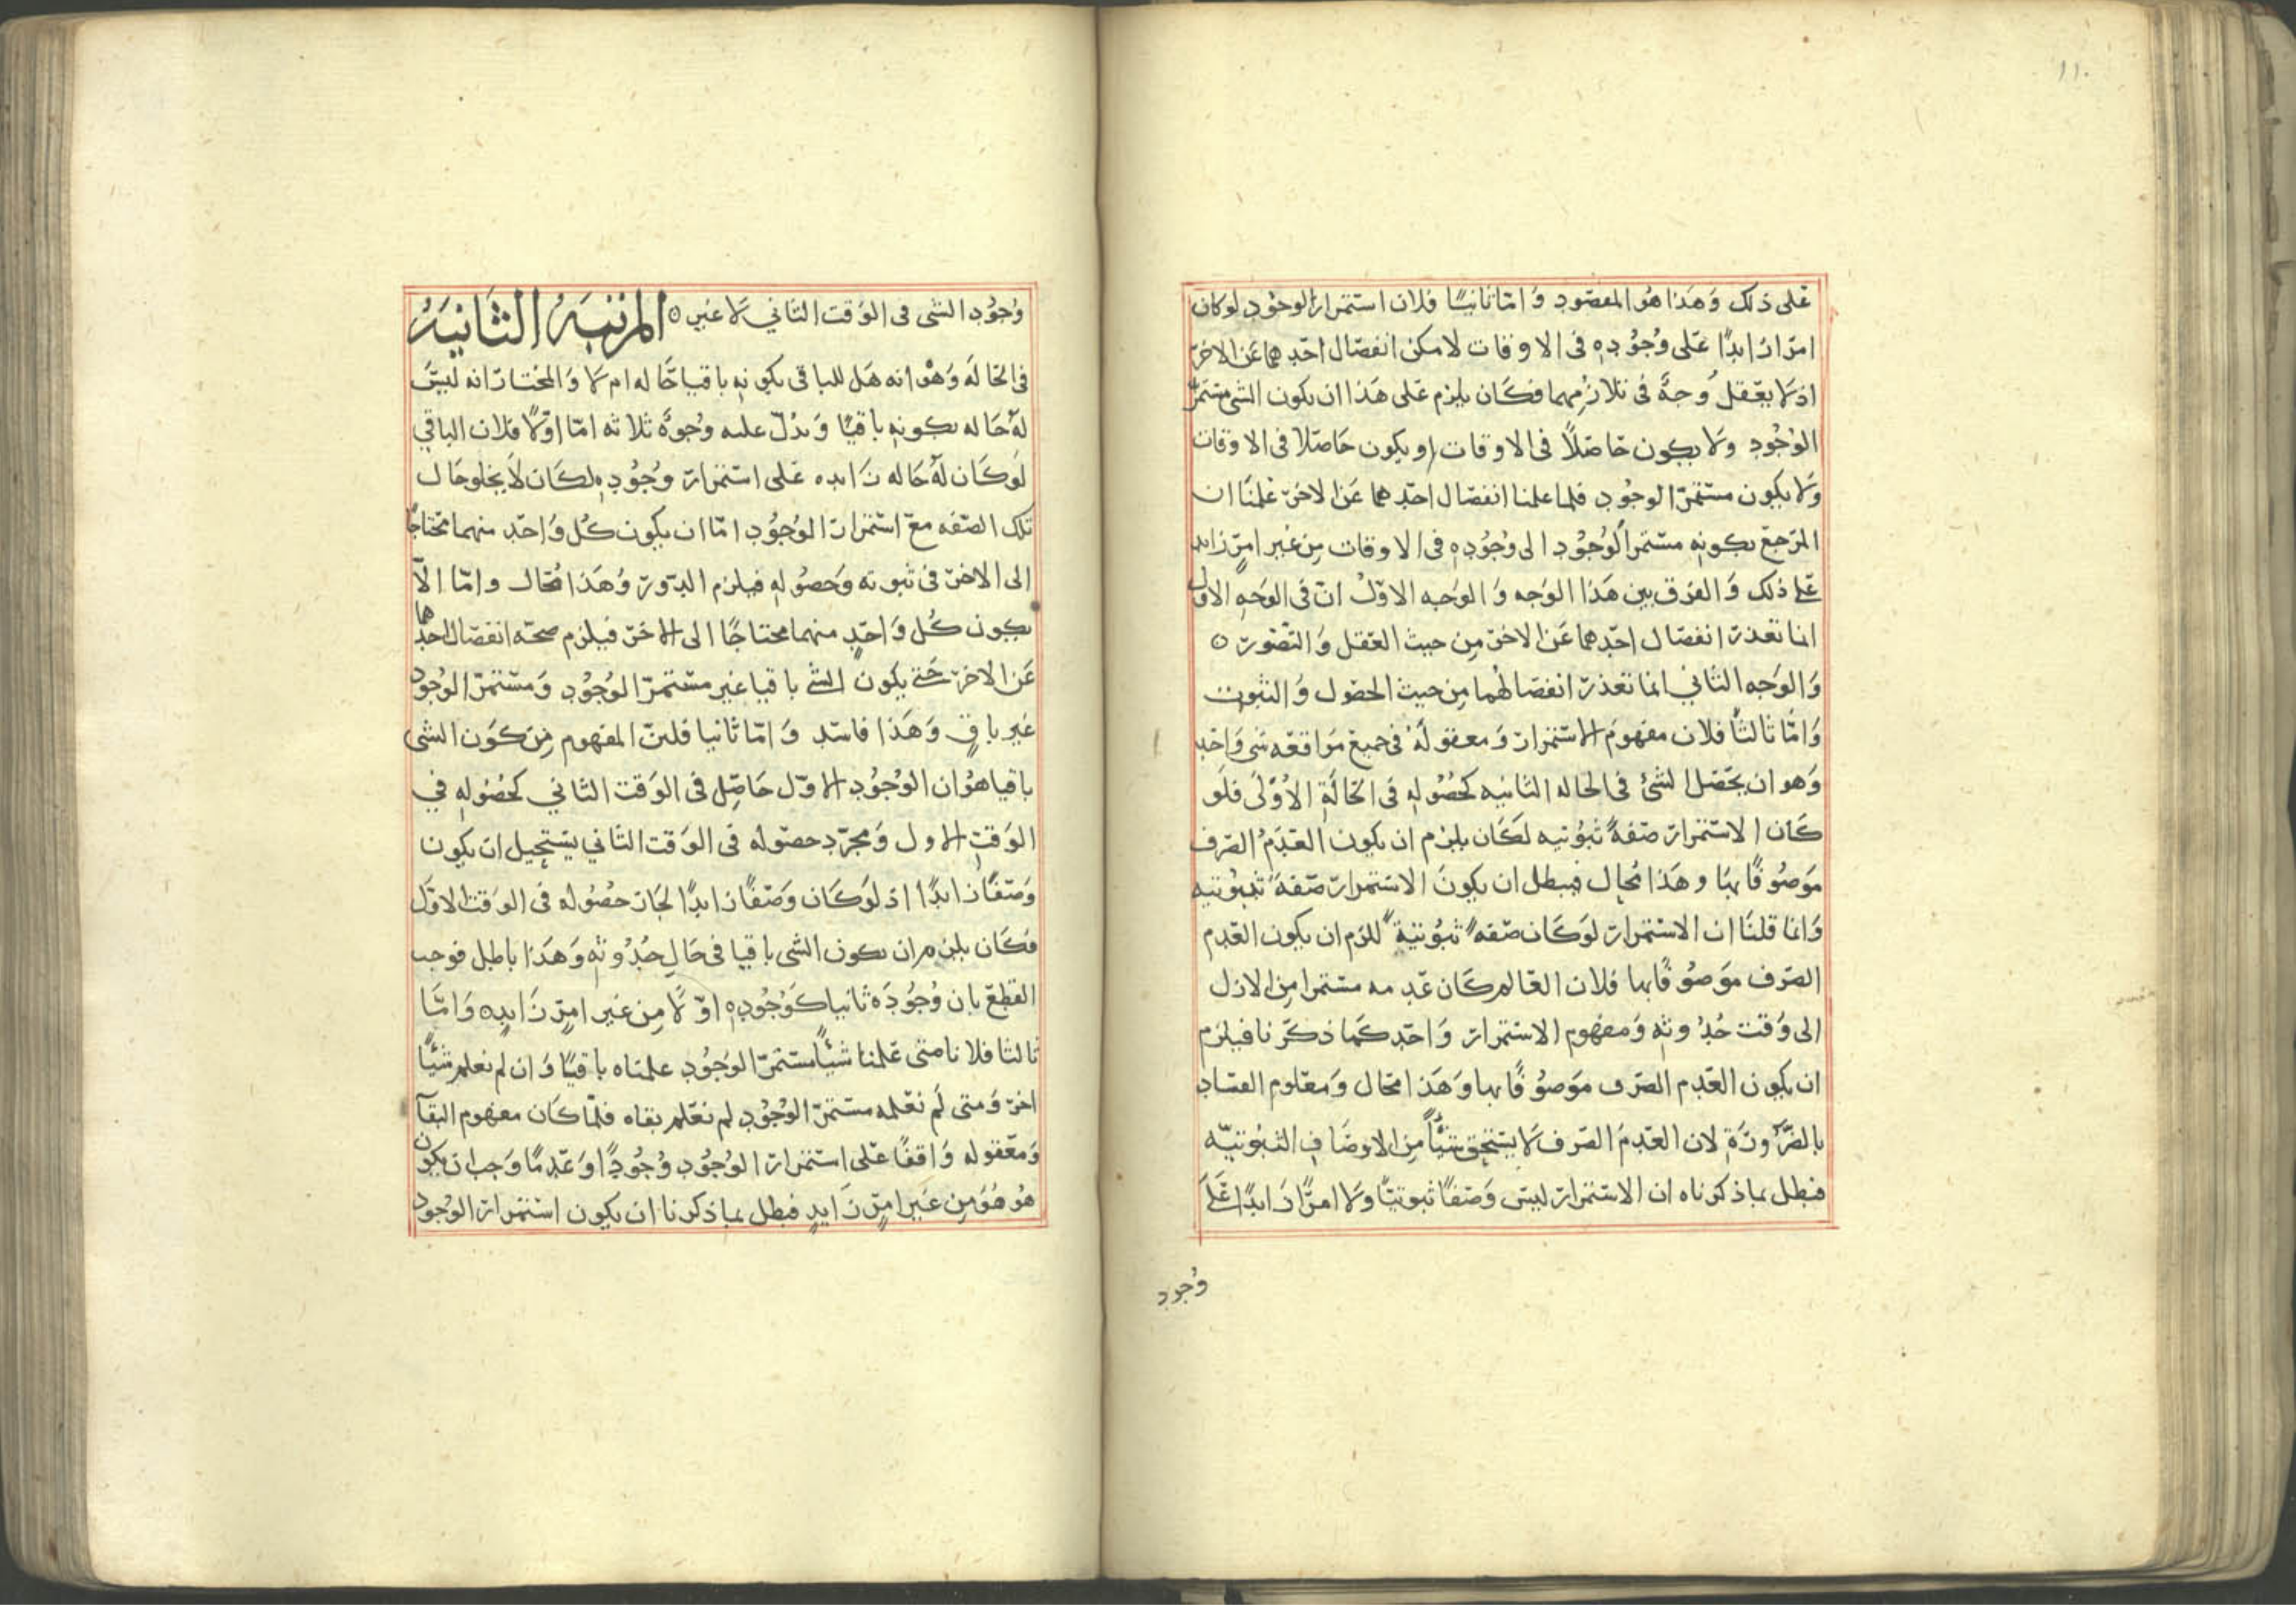 ١١٠
على ذلك وَهَذا هُو المقصود وَامّا ثانيًا فلان استمرار الوجُود لوكان
امرًا زايدًا عَلى وُجُودِه فى الاوقات لامكن انفصَال احَدِهما عَن الاخر
اذ لا يعقل وَجهٌ فى تلازُمِهما فكَان يلزم عَلى هَذا ان يكون الشى مستمرّ
الوُجُودِ ولا يكون حَاصلًا فى الاوقات او يكون حَاصَلا فى الاوقات
وَلا يكون مستمرّ الوجُود فلما علمنا انفصَال احَدِهما عَن الاخر عَلمنَا ان
المرجع بكونِه مستمرَ الوُجُود الى وُجُودِه فى الاوقات مِن غير امرٍ زايد
عَلى ذلك وَالفرق بين هَذا الوَجه وَالوَجه الاوّل انّ فى الوَجهِ الاول
انما تعَذر انفصَال احَدِهما عَن الاخر مِن حيث العَقل وَالتّصَور ٥
وَالوَجه الثَانِي انما تعَذر انفصَالهُما مِن حيث الحصُول وَالثبوت
وَامَّا ثالثًا فلان مفهومَ الاستمرار وَمعقولَهُ فى جميع مَواقعه شى وَاحد
وَهو ان يحصَل الشئ فى الحاله الثانيه كحُصُولِه فى الحَالَةِ الاُوْلَى فلَو
كَان الاستمرار صفةً ثبُوتيه لكَان يلزم ان يكون العَدَمُ الصَرف
مَوصُوفًا بهَا وهَذا مُحال فبطل ان يكونَ الاستمرار صفةً ثبُوتيه
وَانما قلنَا ان الاستمرار لوَكَان صفه ثبُوتيةً للزم ان يكون العَدم
الصَرف مَوصُوفًا بها فلان العَالم كَان عَدمه مستمرا مِن الازل
الى وَقت حُدُوثِه وَمفهوم الاستمرار وَاحَد كمَا ذكرنا فيلزم
ان يكون العَدم الصَرف مَوصُوفًا بها وَهَذا محَال وَمعَلوم الفسَاد
بالضَّرُورَةِ لان العَدمَ الصَرف لا يستحق شيْئًا مِن الاوصَاف الثبُوتيّه
فبطل بماذكرناه ان الاستمرار ليس وَصفًا ثبوتيًا وَلا امرًا زَايدًا عَلَى
وُجود
وُجُودِ الشى فى الوَقت الثانِي لا غير ٥ المرتبَه الثَانيَه
فى الحَالَه وَهْو انه هَل للباقى بكونِه باقيا حَاله ام لا وَالمختار انه ليسَ
لهُ حَاله بكونِه باقيًا وَيدُلّ عليه وُجوهٌ ثلاثه امّا اوّلًا فلان الباقي
لوَكَان لَهُ حَاله زَايده عَلى استمرار وُجُودِه لكَان لاَ يخلو حَال
تلك الصّفه مَع استمرار الوُجُود امّا ان يكون كُل وَاحَد منهما محتاجًا
الى الاخر فى ثبوته وَحصُولِه فيلزم الدَور وَهَذا مُحَال وامّا الّا
يكون كُل وَاحدٍ منهما محتاجًا الى الاخر فيلزم صحّه انفصَال احدهما
عَن الاخر حَتى يكون الشى باقيا غير مستمرّ الوُجُودِ وَمستمرّ الوُجُودِ
غير باقٍ وَهَذا فاسَد وَامّا ثانيا فلان المفهوم مِن كَون الشى
باقيا هُو ان الوُجُودِ الاوّل حَاصِل فى الوَقت الثانِي كحُصُولِه في
الوَقتِ الاول وَمجرّد حصُوله فى الوَقت الثانِي يستحيل ان يكون
وَصفًا زايدًا اذ لوَكَان وَصفًا زايدًا لجَاز حصُوله فى الوَقت الاوّل
فكَان يلزم ان يكون الشى باقيا فى حَال حُدُوثِه وَهَذا باطل فوجب
القطع بان وُجُودَه ثانيا كوَجُودِه اوّلًا مِن غير امرٍ زَايدٍ وَامّا
ثالثا فلانا متى عَلمنا شيْئًا مستمرّ الوجُودِ علمناه باقيًا وَان لم نعلم شيْئًا
اخر وَمتى لَم نعَلمه مستمرّ الوُجُودِ لم نعَلم بقاه فلمّا كان مفهوم البقآ
وَمعَقوله وَاقفًا عَلى استمرار الوُجُودِ وُجُودًا وَعَدمًا وَجب ان يكون
هُو هُوَ مِن غير امرٍ زَايدٍ فبطل بماذكرنا ان يكون استمرار الوُجود